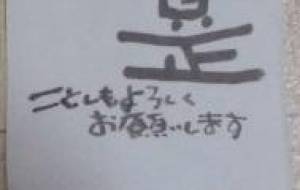 ことしもよろしく
お願いします